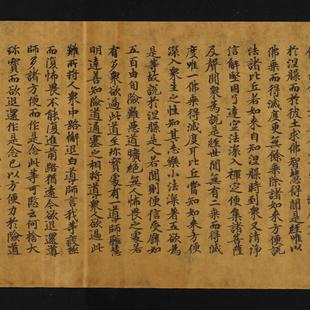 於涅槃而於彼土求佛智慧得聞是經唯以
佛乘而得滅度更無餘乘除諸如來方便說
法諸比丘若如來自知涅槃時到衆又清淨
信解堅固了達空法深入禪定便集諸菩薩
及聲聞衆為說是經世間無有二乘而得滅
度唯一佛乘得滅度耳比丘當知如來方便
深入衆生之性知其志樂小法深著五欲為
是等故說於涅槃是人若聞則便信受譬如
五百由旬險難惡道曠絕無人怖畏之處若
有多衆欲過此道至珎寶處有一道師聰慧
明達善知險道通塞之相將道衆人欲過此
難所將人衆中路懈退白道師言我等疲極
而復怖畏不能復進前路猶遠今欲退還道
師多諸方便而作是念此等可愍云何捨大
珎寶而欲退還作是念已以方便力於險道